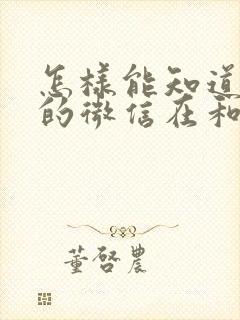 怎样能知道
的微信在和
董啓農